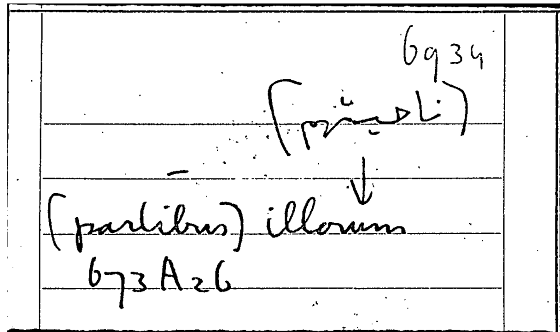 6934
(ناحيتهم)
↓
(partibus) illorum
673A26